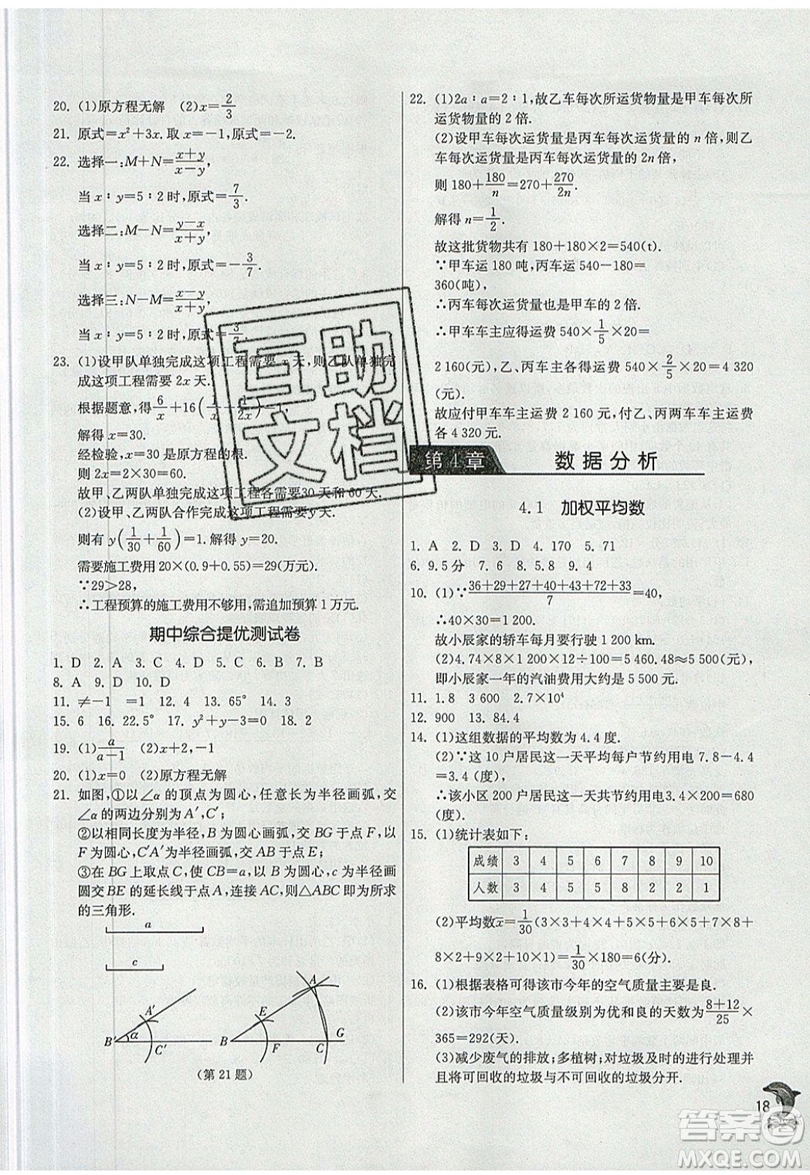 20. (1)原方程无解 (2)x=2/3
21. 原式=x²+3x. 取 x=-1,原式=-2.
22. 选择一:M+N=(x+y)/(x-y),
当 x∶y=5∶2 时,原式=7/3.
选择二:M-N=(y-x)/(x+y),
当 x∶y=5∶2 时,原式=-3/7.
选择三:N-M=(x-y)/(x+y),
当 x∶y=5∶2 时,原式=3/
23. (1)设甲队单独完成这项工程需要 x 天,则乙队单独完
成这项工程需要 2x 天.
根据题意,得 6/x+16(1/x+1/2x)=1.
解得 x=30.
经检验,x=30 是原方程的解.
∴2x=2×30=60.
故甲、乙两队单独完成这项工程各需要30天、60天.
(2)设甲、乙两队合作完成这项工程需要 y 天.
则有 y(1/30+1/60)=1. 解得 y=20.
需要施工费用 20×(0.9+0.55)=29(万元).
∵29>28,
∴工程预算的施工费用不够用,需追加预算 1 万元.
期中综合提优测试卷
1. D 2. A 3. C 4. D 5. C 6. D 7. B
8. A 9. D 10. D
11. ≠-1 =1 12. 4 13. 65° 14. 3
15. 6 16. 22.5° 17. y²+y-3=0 18. 2
19. (1)a/(a-1) (2)x+2,-1
20. (1)x=0 (2)原方程无解
21. 如图,①以∠α 的顶点为圆心,任意长为半径画弧,交
∠α 的两边分别为 A′,C′;
②以相同长度为半径,B 为圆心画弧,交 BG 于点 F,以
F 为圆心,C′A′为半径画弧,交 于点 E;
③在 BG 上取点 C,使 CB=a,以点 C 为圆心,c 为半径画
圆交 BE 的延长线于点 A,连接 AC,则△ABC 即为所求
的三角形.
a
c
A′ B′ α C′ A E B F C G
(第 21 题)
22. (1)2a∶a=2∶1,故乙车每次所运货物量是甲车每次所
运货物量的 2 倍.
(2)设甲车每次运货量是丙车每次运货量的 n 倍,则乙
车每次运货量是丙车每次运货量的 2n 倍,
则 180+180/n=270+270/2n.
解得 n=1/2.
故这批货物共有 180+180×2=540(t).
∵甲车运 180 吨,丙车运 540-180=
360(吨),
∴丙车每次运货量是甲车的 2 倍.
∴甲车车主应得运费 540×1/5×20=
2 160(元),乙、丙车车主各得运费 540×2/5×20=4 320
(元).
故应付甲车车主运费 2 160 元,付乙、丙两车车主运费
各 4 320 元.
第 4 章 数据分析
4.1 加权平均数
1. A 2. D 3. D 4. 170 5. 71
6. 9.5 分 7. 6 8. 5.8 9. 4
10. (1)∵(36+29+27+40+43+72+33)/7=40,
∴40×30=1 200.
故小辰家的轿车每月要行驶 1 200 km.
(2)4.74×8×1 200÷100×12=5 460.48≈5 500(元),
即小辰家一年的汽油费用大约是 5 500 元.
11. 1.8 3 600 2.7×10⁴
12. 900 13. 84.4
14. (1)这组数据的平均数为 4.4 度.
(2)∵这 10 户居民这一天平均每户节约用电 7.8-4.4
=3.4 (度),
∴该小区 200 户居民这一天共节约用电 3.4×200=680
(度).
15. (1)统计表如下:
成绩 3 4 5 6 7 8 9 10
人数 3 1 3 5 7 6 3 2
(2)平均数x̄=1/30(3×3+4×1+5×3+6×5+7×7+8×
6+9×3+10×2)=1/30×180=6(分).
16. (1)根据表格可得该市今年的空气质量主要是良.
(2)该市今年空气质量级别为优和良的天数为(8+12)/25×
365=292(天).
(3)减少废气的排放;多植树;对垃圾及时的进行处理并
且将可回收的垃圾与不可回收的垃圾分开.
18
互助
文档
答案圈
MXQE.COM